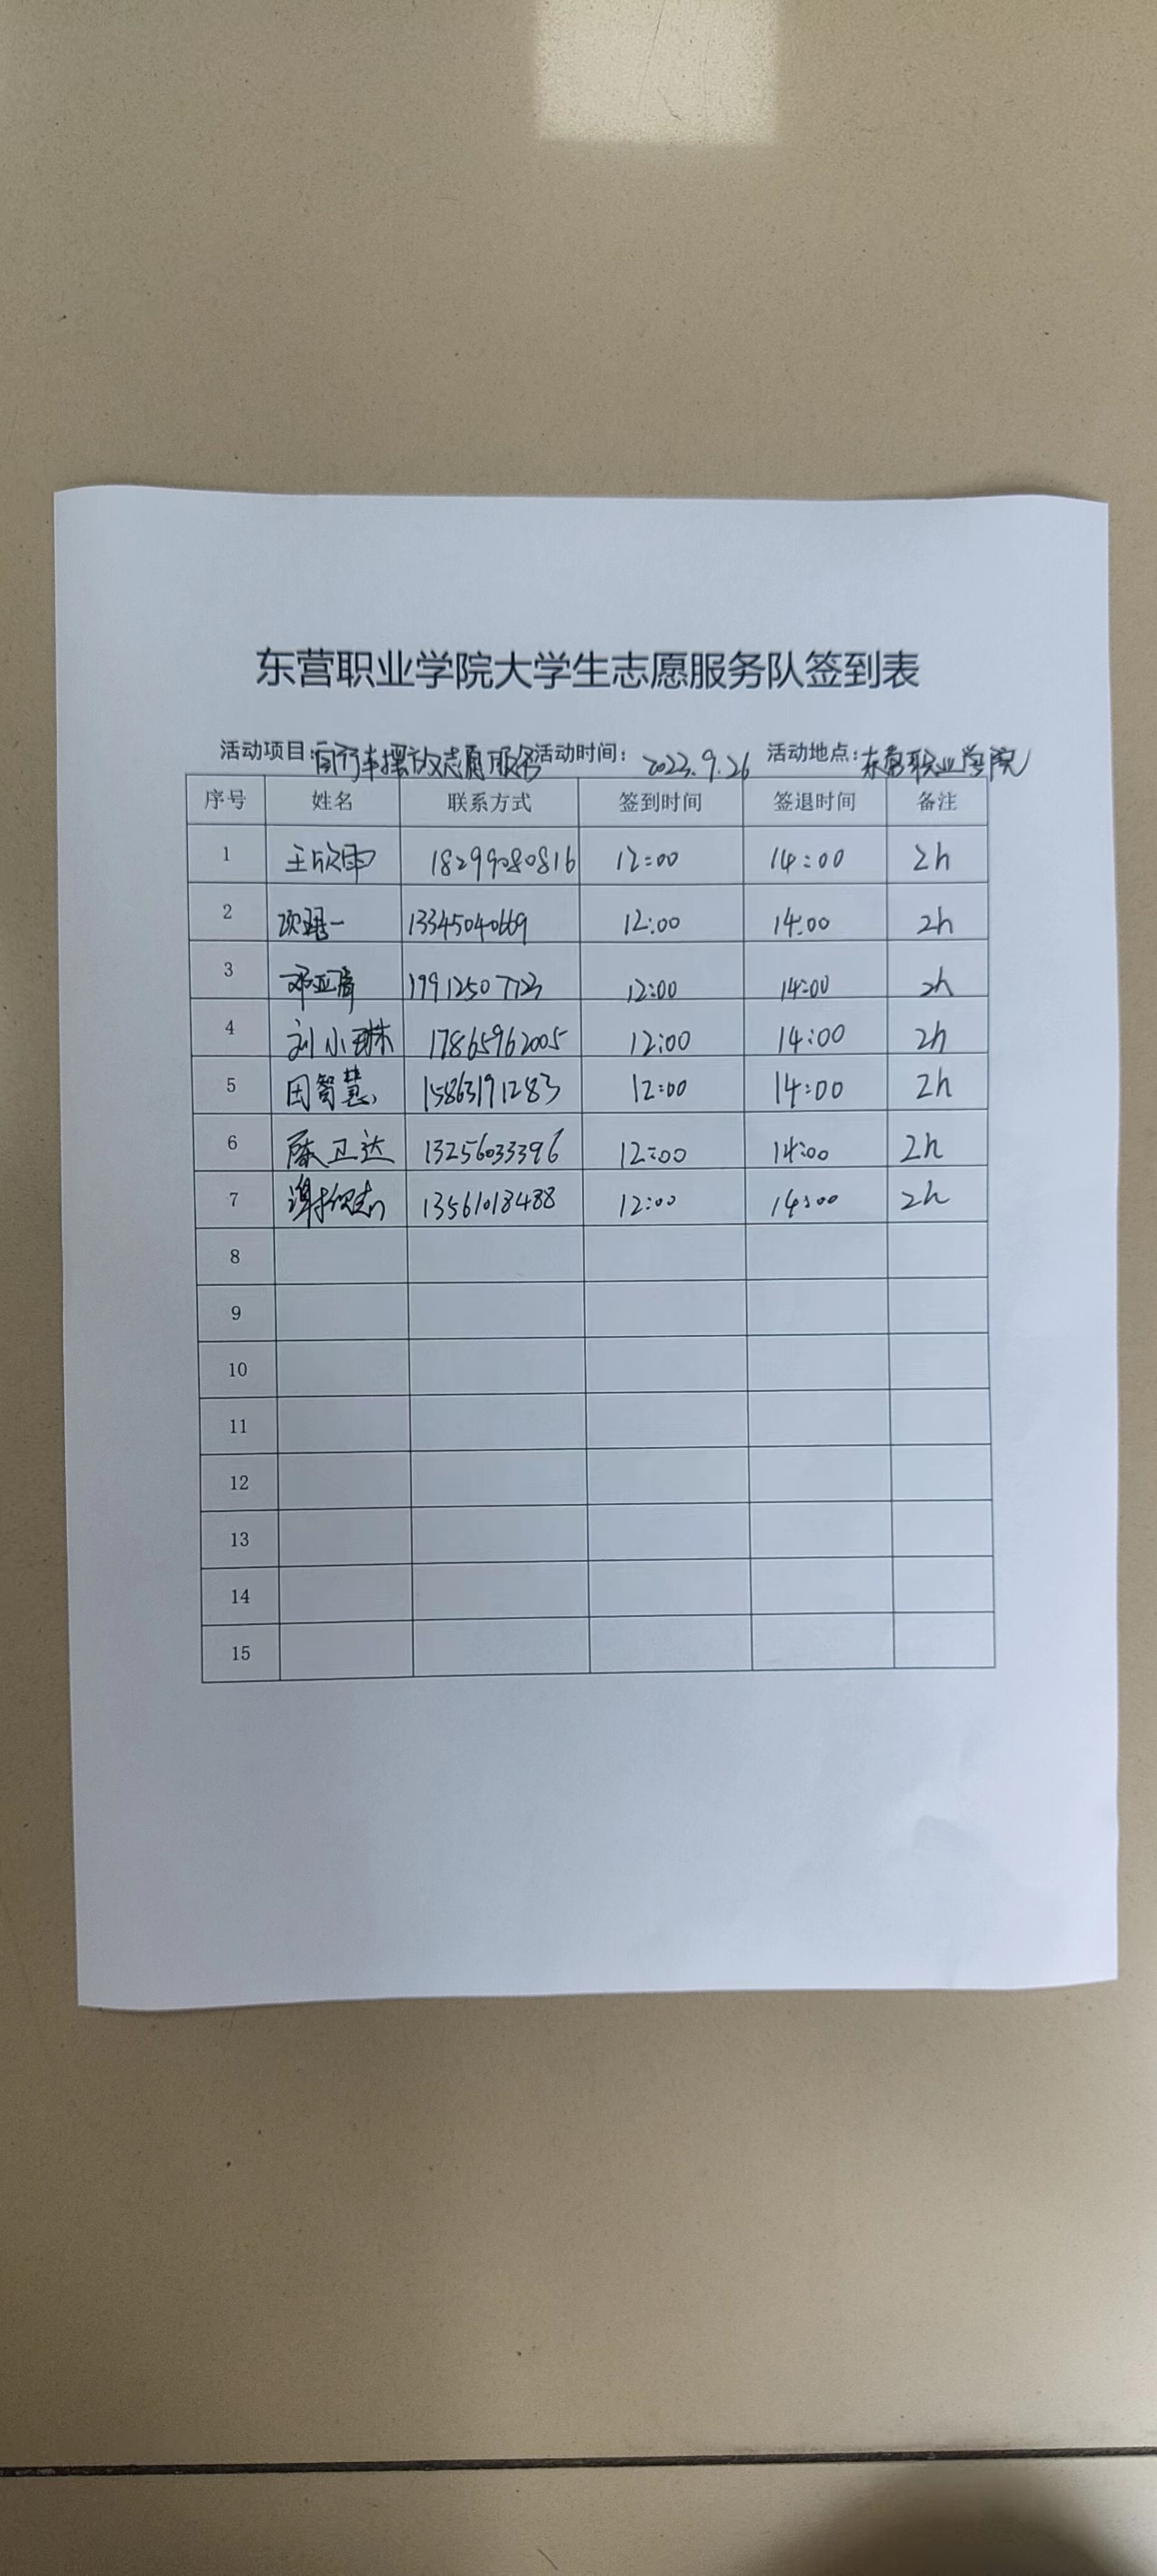 东营职业学院大学生志愿服务队签到表
活动项目:自行车摆放志愿服务 活动时间: 2023.9.26 活动地点:东营职业学院
序号 姓名 联系方式 签到时间 签退时间 备注
1 王欣雨 18299080816 12:00 14:00 2h
2 一 13345040669 12:00 14:00 2h
3 邓亚 19912507723 12:00 14:00 2h
4 刘小琳 17865962005 12:00 14:00 2h
5 田智慧 15863191283 12:00 14:00 2h
6 卫达 13256033396 12:00 14:00 2h
7 谢 13561018488 12:00 14:00 2h
8
9
10
11
12
13
14
15